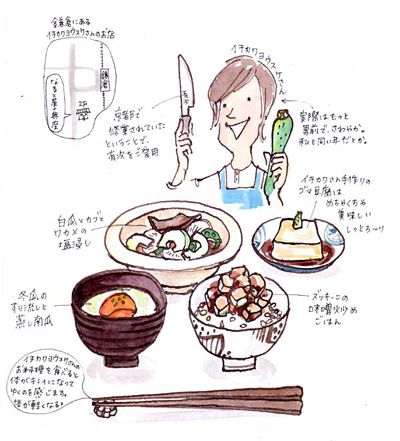 鎌倉にある
イチカワヨウスケさんのお店
鎌倉
なると屋+典座
2F
イチカワヨウスケさん
京都で
修業されていた
ということで、
有次をご愛用
有次
実際はもっと
男前で、さわやか。
私と同い年だとか。
イチカワさん手作りの
ゴマ豆腐は
めちゃくちゃ
美味しい
しっとり〜
白瓜とカブと
ワカメの
塩浸し
冬瓜の
すり流しと
蒸し南瓜
ズッキーニの
味噌炒め
ごはん
イチカワヨウスケさんの
お料理を食べると
体がキレイになって
ゆくのを感じます。
体が軽くなる。